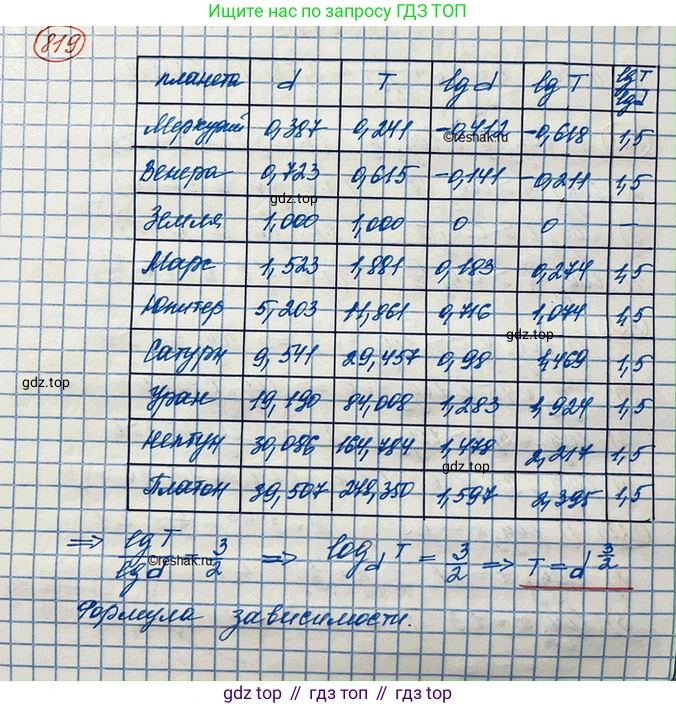 Ищите нас по запросу ГДЗ ТОП
819
планета d T lg d lg T lg T / lg d
Меркурий 0,387 0,241 -0,412 -0,618 1,5
©reshak.ru
Венера 0,723 0,615 -0,141 -0,211 1,5
gdz.top
Земля 1,000 1,000 0 0 —
Марс 1,523 1,881 0,183 0,274 1,5
Юпитер 5,203 11,861 0,716 1,074 1,5
gdz.top
Сатурн 9,541 29,457 0,98 1,469 1,5
gdz.top
Уран 19,190 84,008 1,283 1,924 1,5
Нептун 30,086 164,784 1,478 2,217 1,5
gdz.top
Платон 39,507 248,350 1,597 2,395 1,5
⇒ lg T / lg d = 3/2 ⇒ log_d T = 3/2 ⇒ T = d^(3/2)
©reshak.ru
Формула зависимости.
gdz top // гдз топ // gdz top